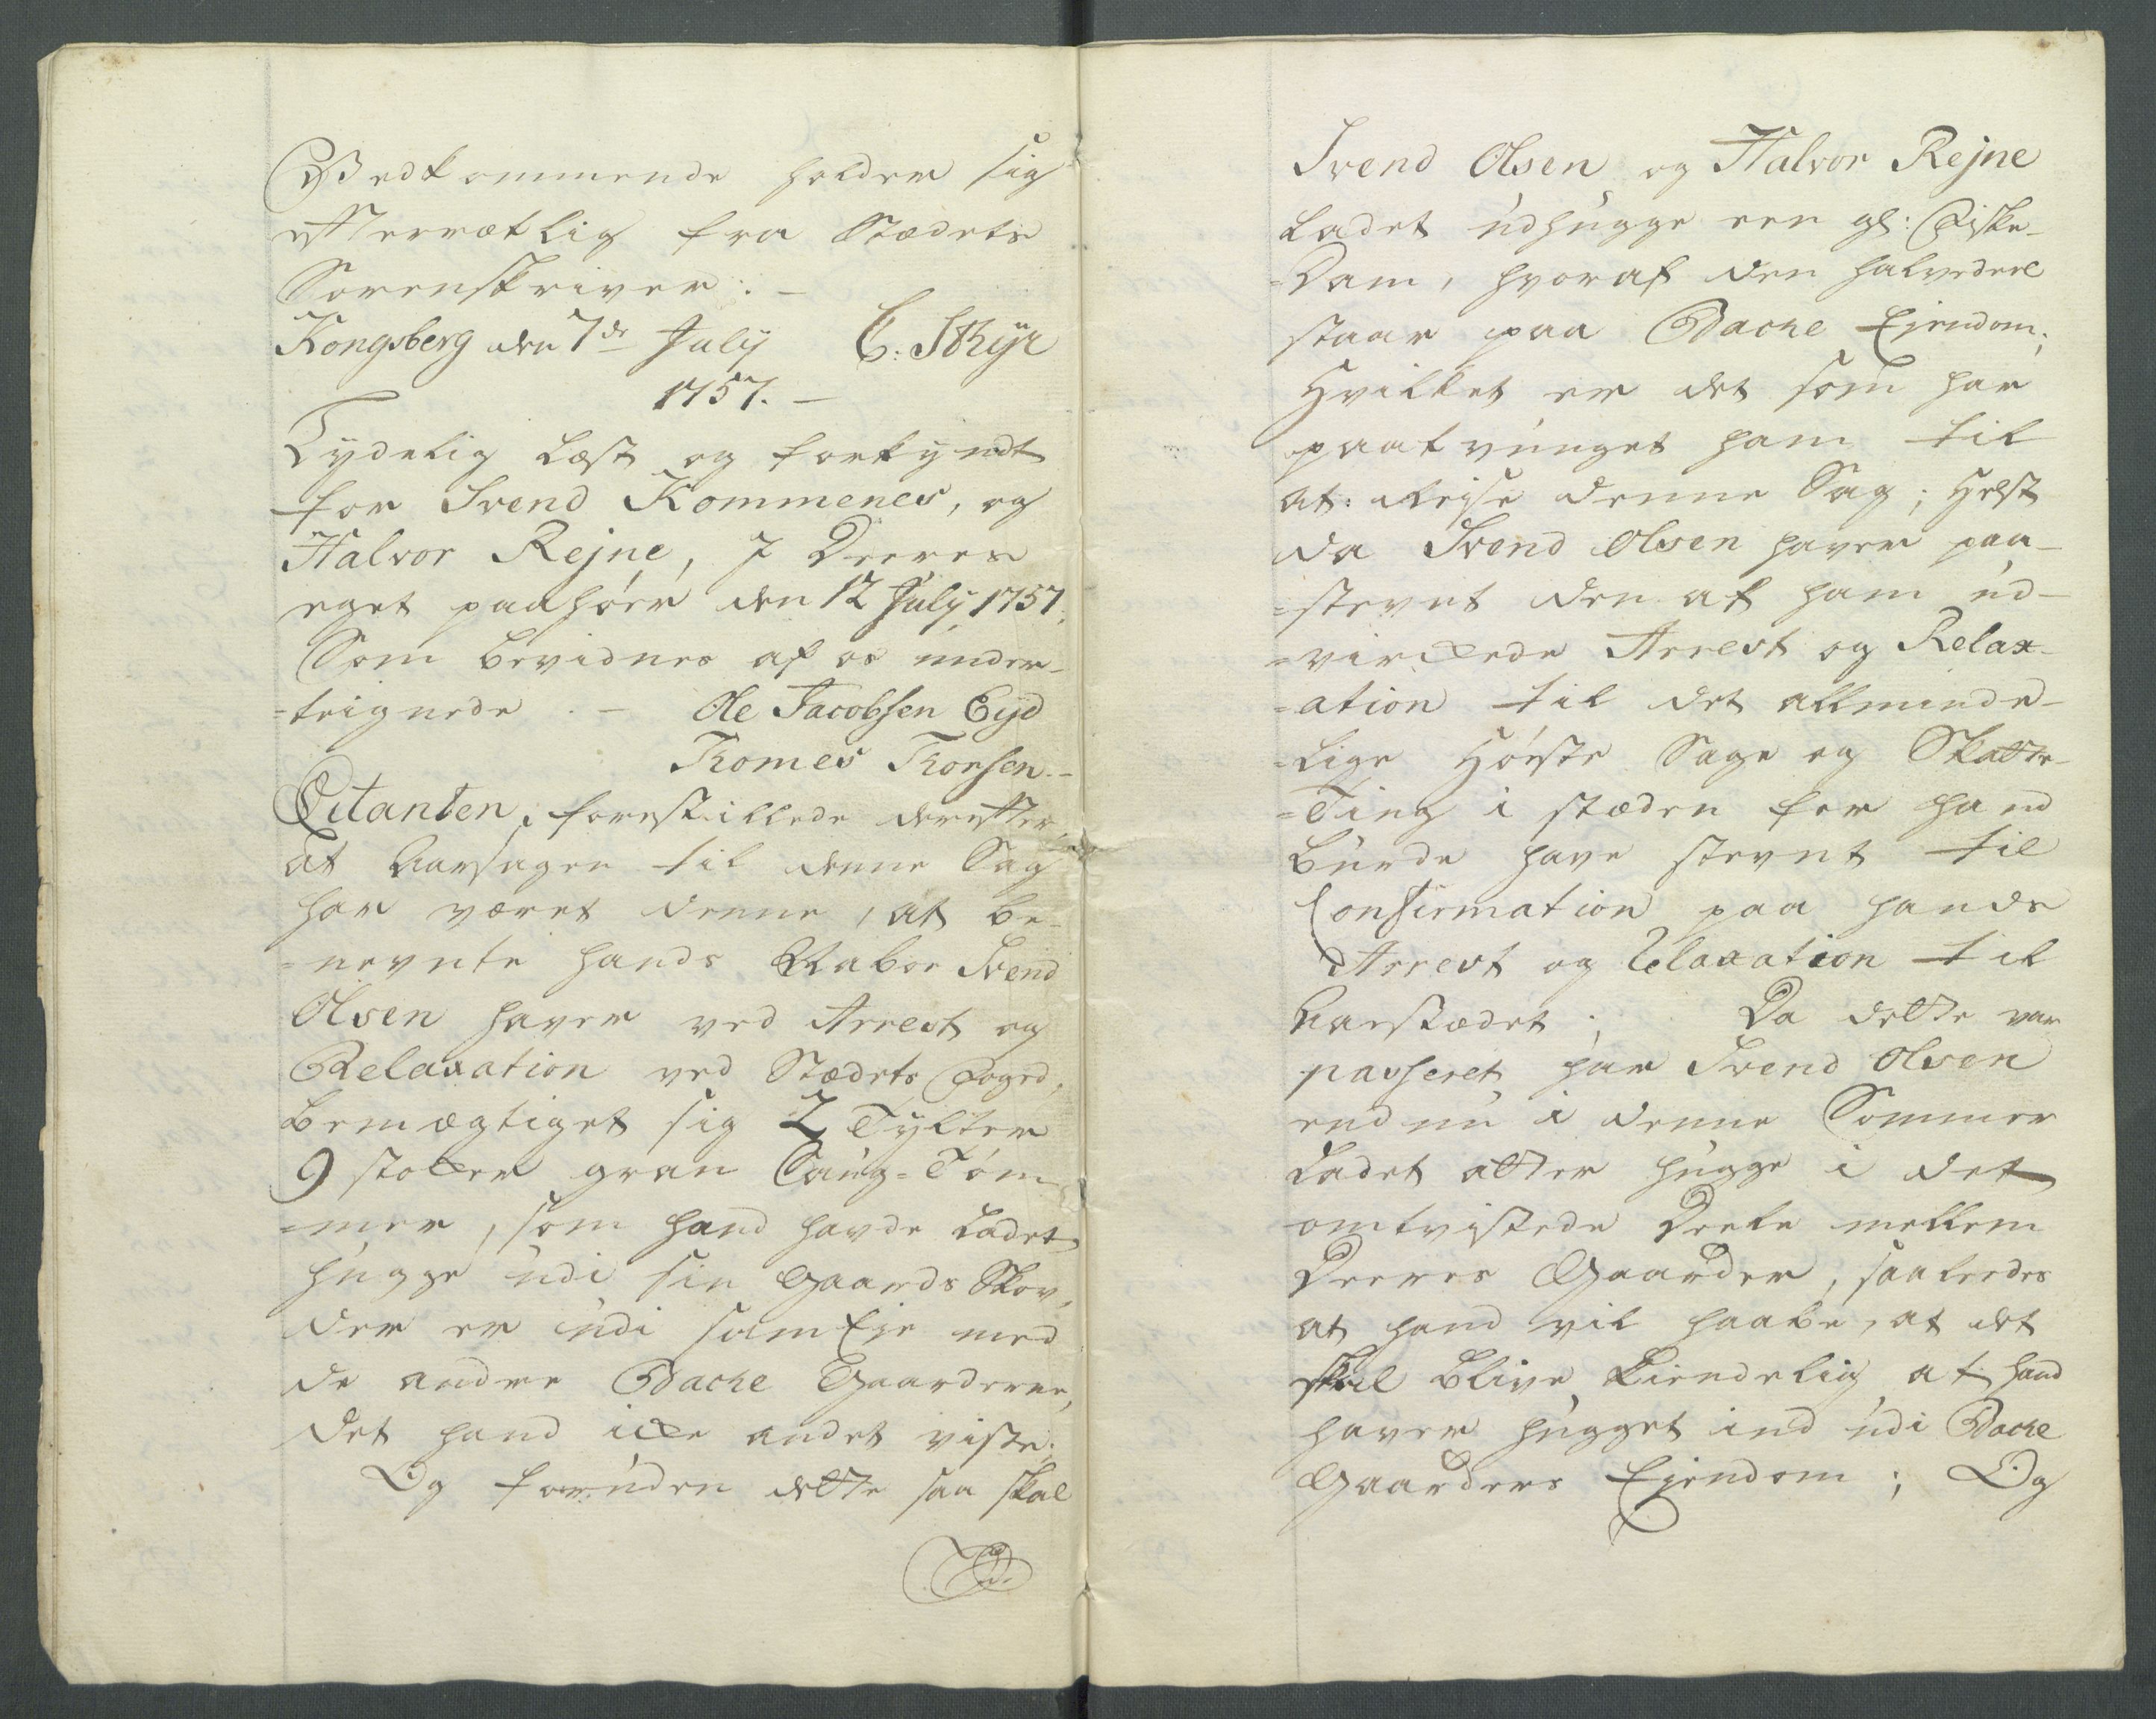 Vedkommende holder sig
efterretlig fra Stædets
Sorenskriver. –
Kongsberg den 7de July C: Sthyr
1757. –
Tydelig Læst og forkyndt
for Svend Kommenes, og
Halvor Rejne, I Deeres
eget paahør den 12 July 1757.
Som bevidnes af os under-
=teignede. – Ole Jacobsen Eyd
Thomes Thorsen. –
Citanten forestillede derefter,
at Aarsagen til denne Sag
har været denne, at be-
=nevnte hands Nabor Svend
Olsen haver ved Arrest og
Relaxation ved Stædets Foged,
bemægtiget sig 2 Tylter
9 stokker gran Saug=Tøm-
=mer, som hand havde Ladet
hugge udi sin Gaards Skov,
der er udi samEje med
de andre Bache Gaarderne,
det hand icke andet viste;
Og foruden dette saa skal
Svend Olsen og Halvor Rejne
Ladet udhugge een gl: Fiske-
=Dam, hvoraf den halvedeel
staar paa Bache Ejendom;
Hvilket er det som har
paatvunget ham til
at Reise denne Sag; Helst
da Svend Olsen haver paa-
=stevnt den af ham ud-
=virckede Arrest og Relax-
=ation til det allminde-
=lige Høste Sage og Skatte-
=Ting i stæden for hand
burde have stevnt til
Confirmation paa hands
Arrest og Relaxation til
Aarstædet; Da dette var
passeret har Svend Olsen
end nu i denne Sommer
Ladet atter hugge i det
omtvistede Deele mellem
Deeres Gaarder, saaleedes
at hand vil haabe, at det
skal blive kiendelig at hand
haver hugget ind udi Bache
Gaarders Ejendom; Og